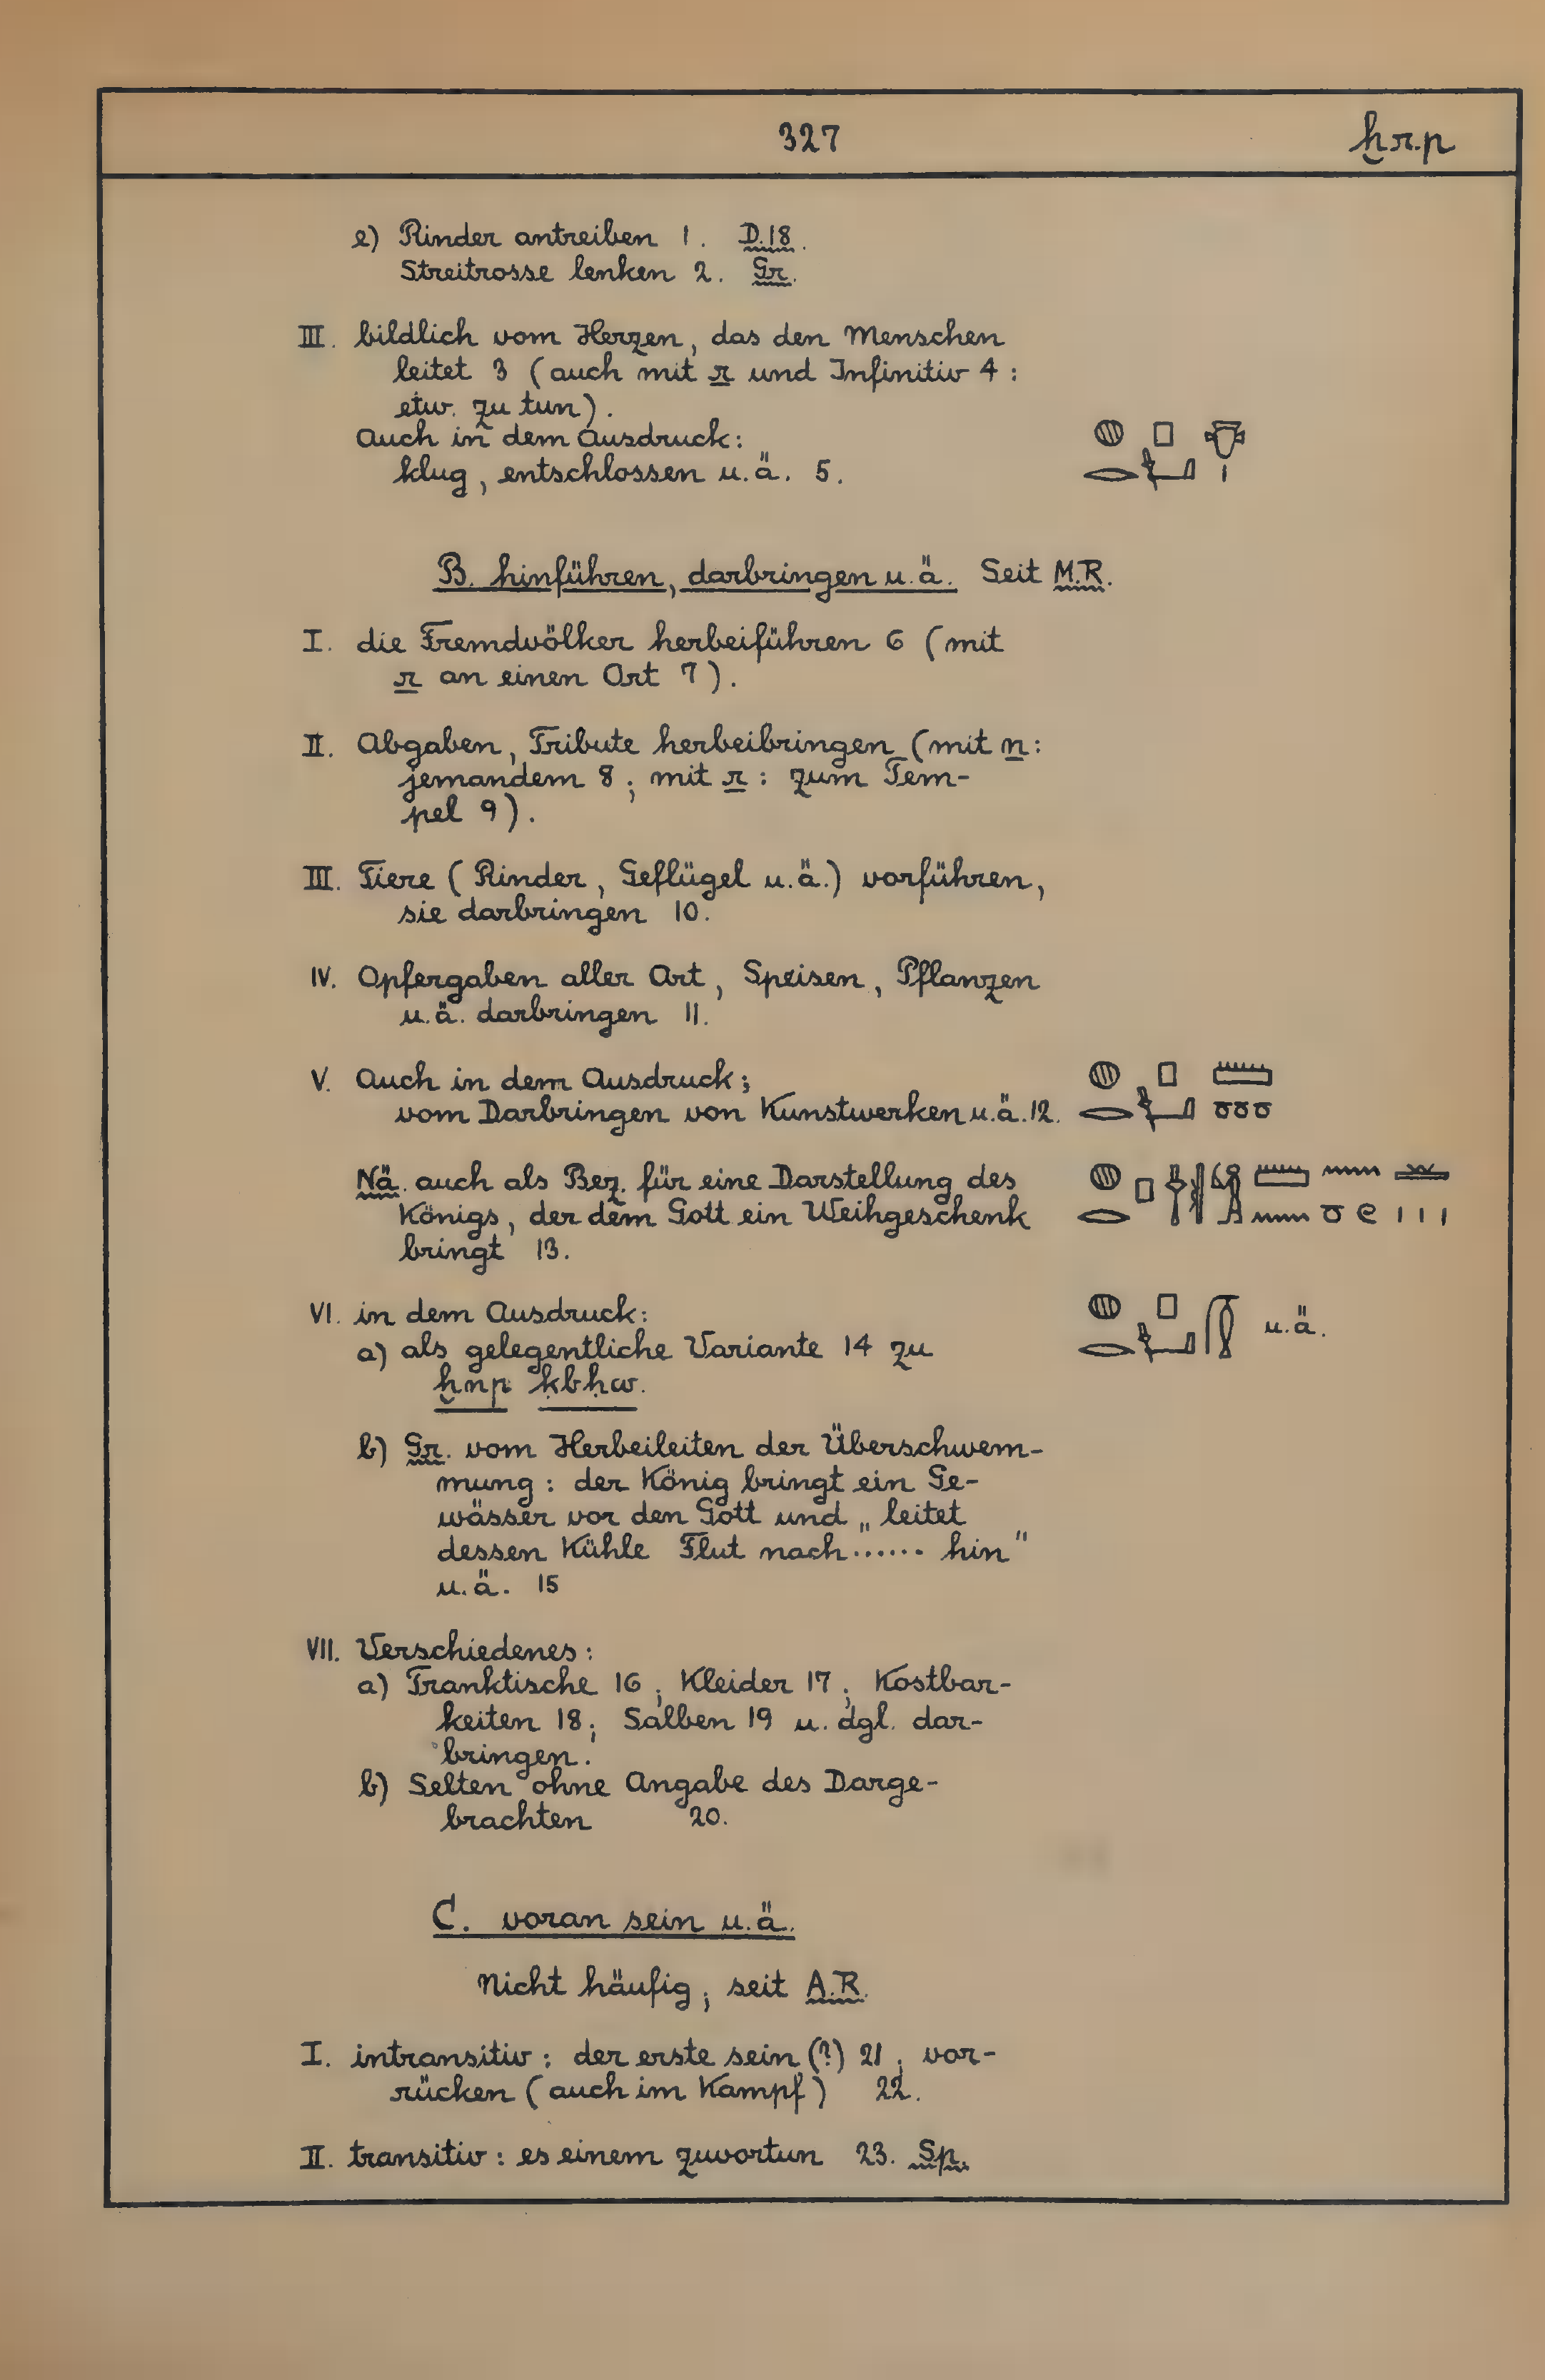 327 ḫrp
e) Rinder antreiben 1. D.18.
Streitrosse lenken 2. Gr.
III. bildlich vom Herzen, das den Menschen
leitet 3 (auch mit r und Infinitiv 4:
etw. zu tun).
Auch in dem Ausdruck:
klug, entschlossen u.ä. 5.
B. hinführen, darbringen u.ä. Seit M.R.
I. die Fremdvölker herbeiführen 6 (mit
r an einen Ort 7).
II. Abgaben, Tribute herbeibringen (mit n:
jemandem 8; mit r: zum Tem-
pel 9).
III. Tiere (Rinder, Geflügel u.ä.) vorführen,
sie darbringen 10.
IV. Opfergaben aller Art, Speisen, Pflanzen
u.ä. darbringen 11.
V. Auch in dem Ausdruck;
vom Darbringen von Kunstwerken u.ä. 12.
Nä. auch als Bez. für eine Darstellung des
Königs, der dem Gott ein Weihgeschenk
bringt 13.
VI. in dem Ausdruck: u.ä.
a) als gelegentliche Variante 14 zu
ḫnp ḳbḥw.
b) Gr. vom Herbeileiten der Überschwem-
mung: der König bringt ein Ge-
wässer vor den Gott und „leitet
dessen Kühle Flut nach ...... hin"
u.ä. 15
VII. Verschiedenes:
a) Tranktische 16; Kleider 17; Kostbar-
keiten 18; Salben 19 u. dgl. dar-
bringen.
b) Selten ohne Angabe des Darge-
brachten 20.
C. voran sein u.ä.
Nicht häufig; seit A.R.
I. intransitiv: der erste sein (?) 21; vor-
rücken (auch im Kampf) 22.
II. transitiv: es einem zuvortun 23. Sp.